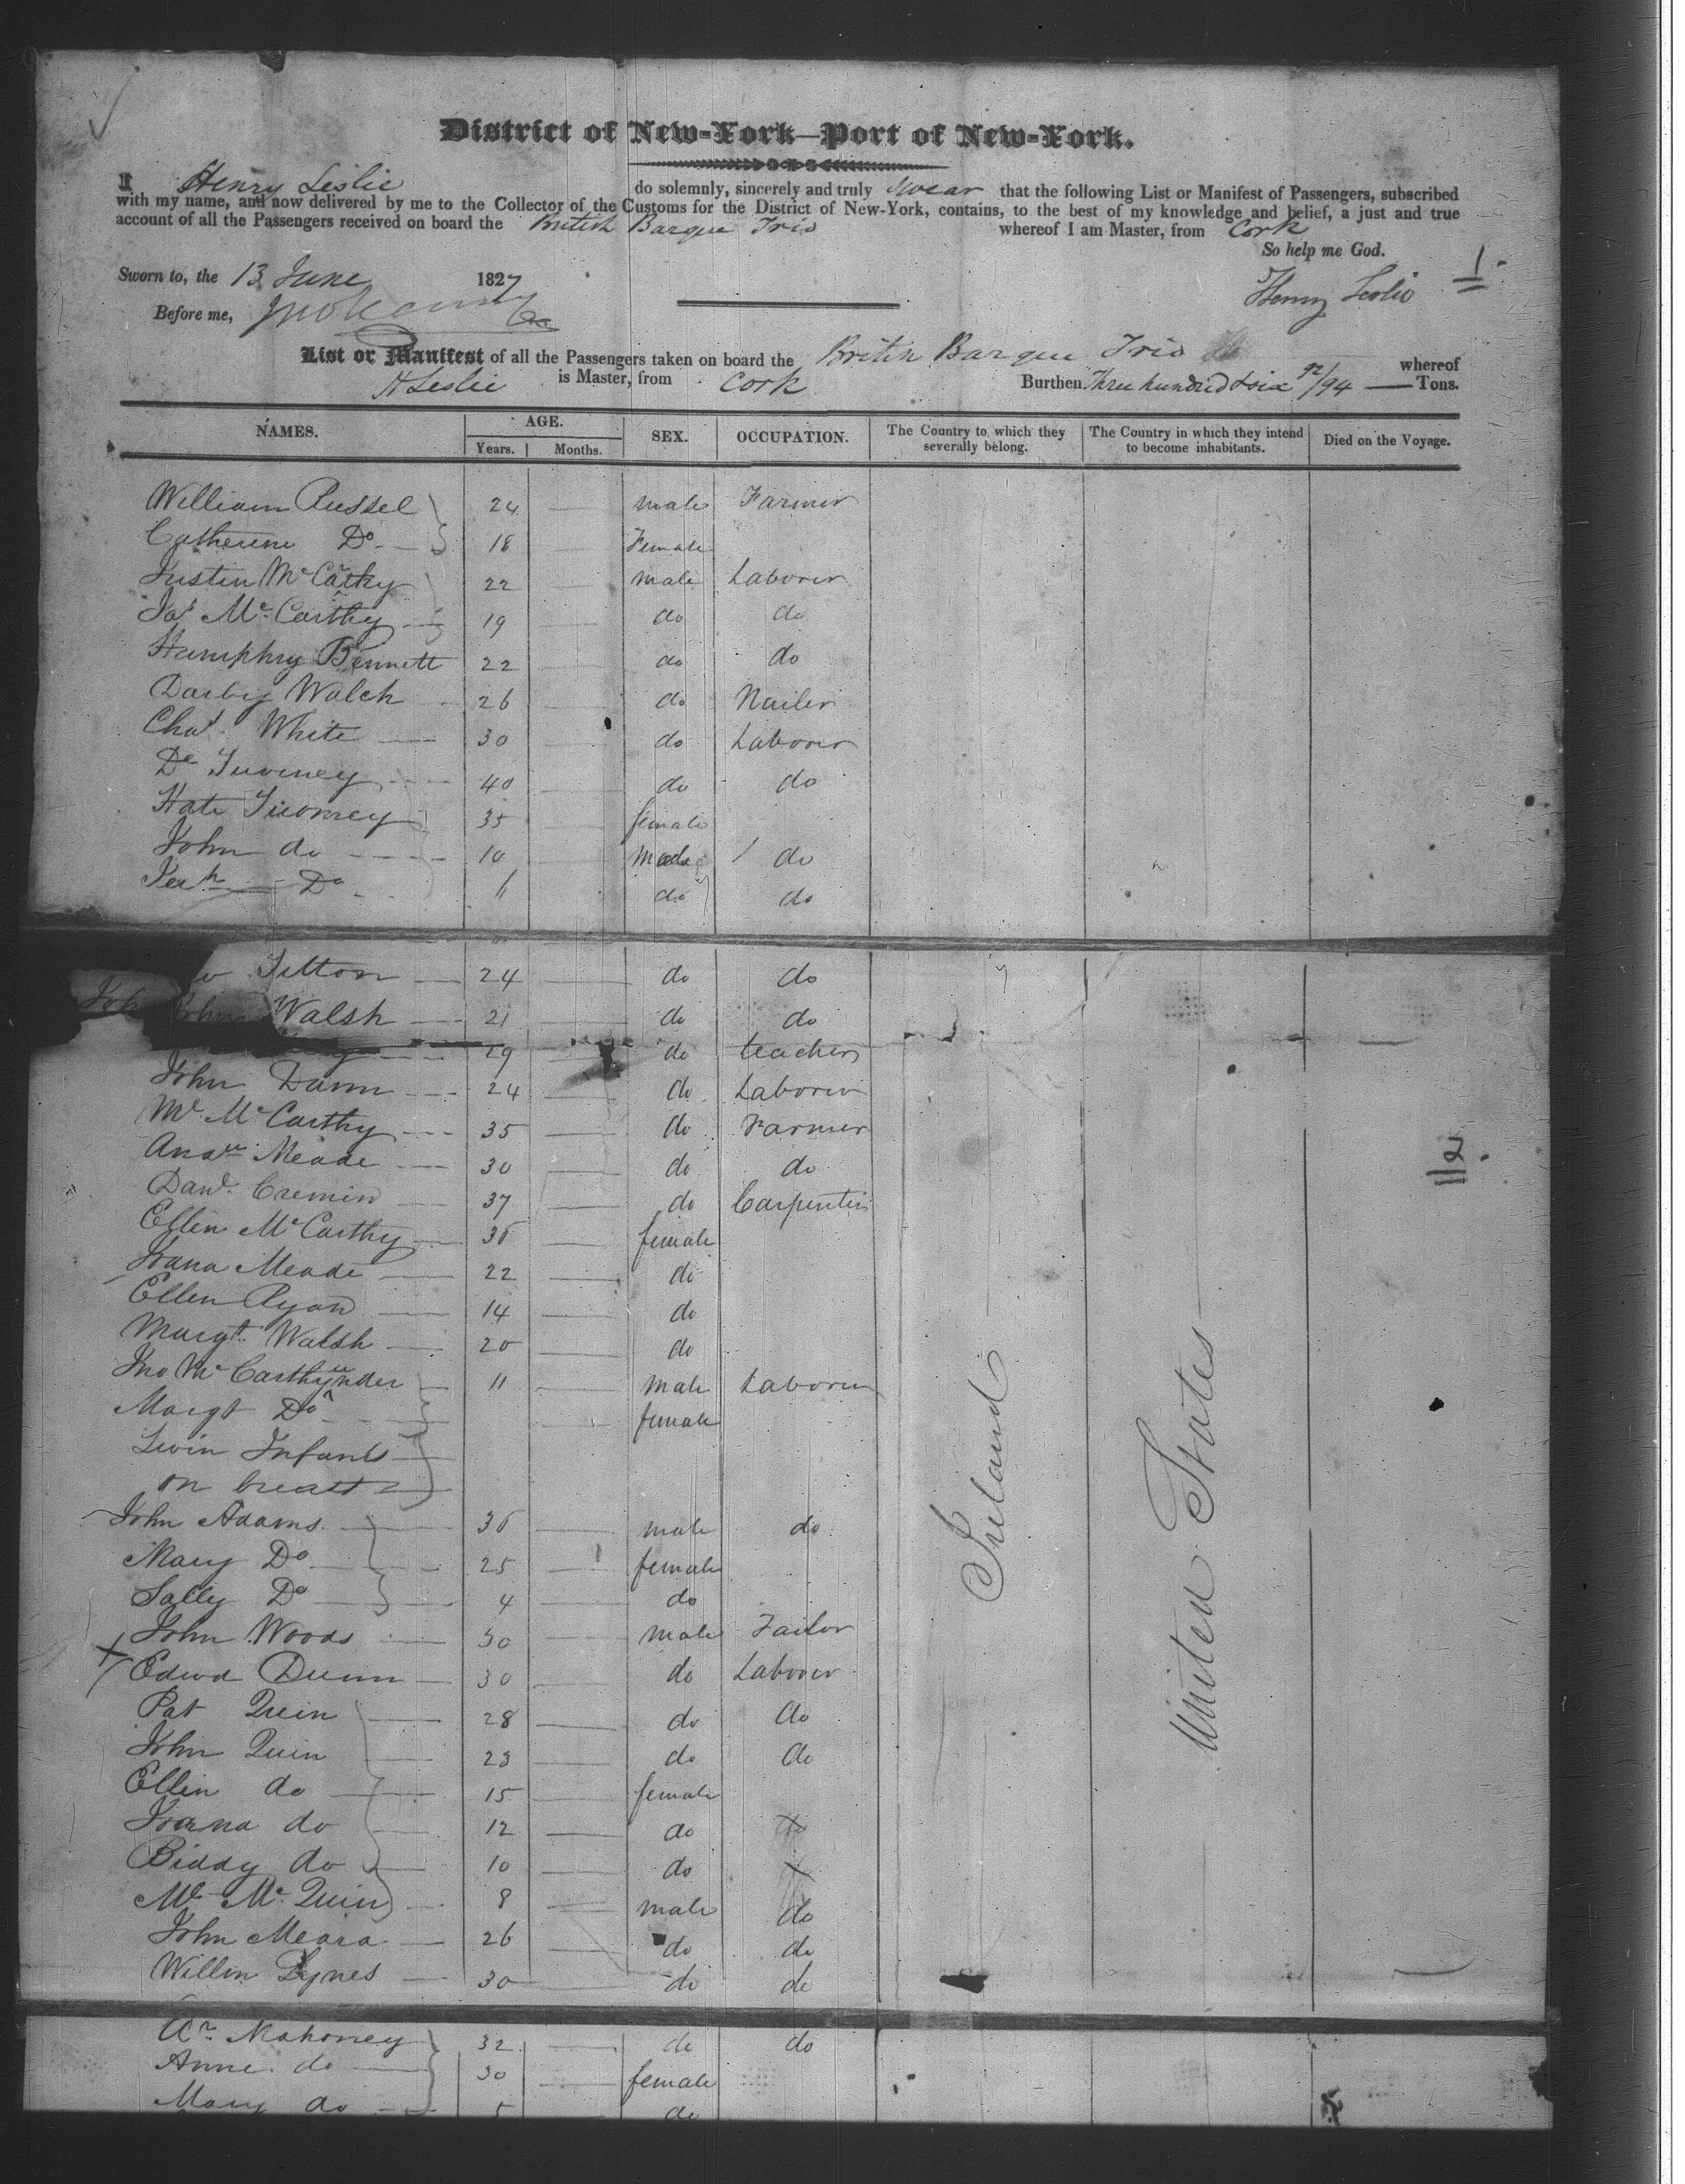 District of New-York—Port of New-York.
I Henry Leslie do solemnly, sincerely and truly swear that the following List or Manifest of Passengers, subscribed
with my name, and now delivered by me to the Collector of the Customs for the District of New-York, contains, to the best of my knowledge and belief, a just and true
account of all the Passengers received on board the British Barque Trio whereof I am Master, from Cork
So help me God.
Sworn to, the 13 June 1827
Henry Leslie 1
Before me,
List or Manifest of all the Passengers taken on board the British Barque Trio whereof
H Leslie is Master, from Cork Burthen Three hundred & six 92/94 Tons.
NAMES. AGE. Years. Months. SEX. OCCUPATION. The Country to which they severally belong. The Country in which they intend to become inhabitants. Died on the Voyage.
William Russel 24 male Farmer
Catherine Do 18 Female
Justin McCarthy 22 male Laborer
Jas McCarthy 19 do do
Humphry Bennett 22 do do
Darby Walch 26 do Nailer
Chas White 30 do Laborer
Twomey 40 do do
Kate Twomey 35 female
John do 10 male do
Jerh Do do do
Titton 24 do do
John Walsh 21 do do
29 do teacher
John Dunn 24 do Laborer
Mc Carthy 35 do Farmer
Andw Meade 30 do do
Danl Cremin 37 do Carpenter
Ellen McCarthy 36 female
Joana Meade 22 do
Ellen Ryan 14 do
Margt Walsh 20 do
Jno McCarthy under 11 male Laborer
Margt Do female
Twin Infants
on breast
John Adams 36 male do
Mary Do 25 female
Sally Do 4 do
John Woods 30 male Tailor
Edwd Dunn 30 do Laborer
Pat Quin 28 do do
John Quin 23 do do
Ellen do 15 female
Joana do 12 do
Biddy do 10 do
Quin 8 male do
John Meara 26 do do
Willm Lynes 30 do do
Mahoney 32 do do
Anne do 30 female
Mary do 5 do
Ireland
United States
2